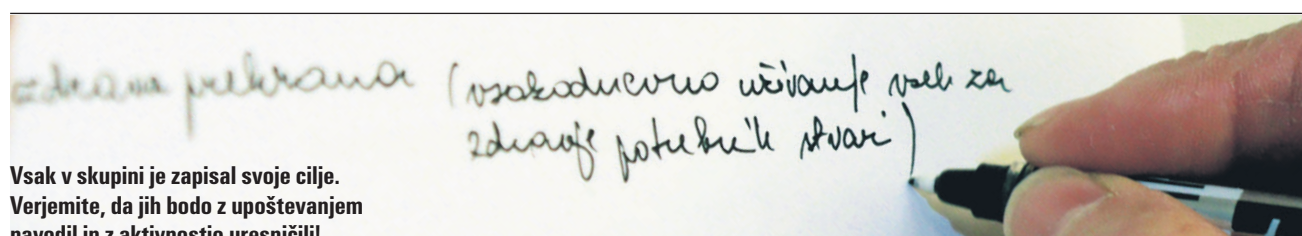 zdrava prehrana (vsakodnevno uživanje vseh za
zdravje potrebnih stvari)
Vsak v skupini je zapisal svoje cilje.
Verjemite, da jih bodo z upoštevanjem
navodil in z aktivnostjo uresničili!